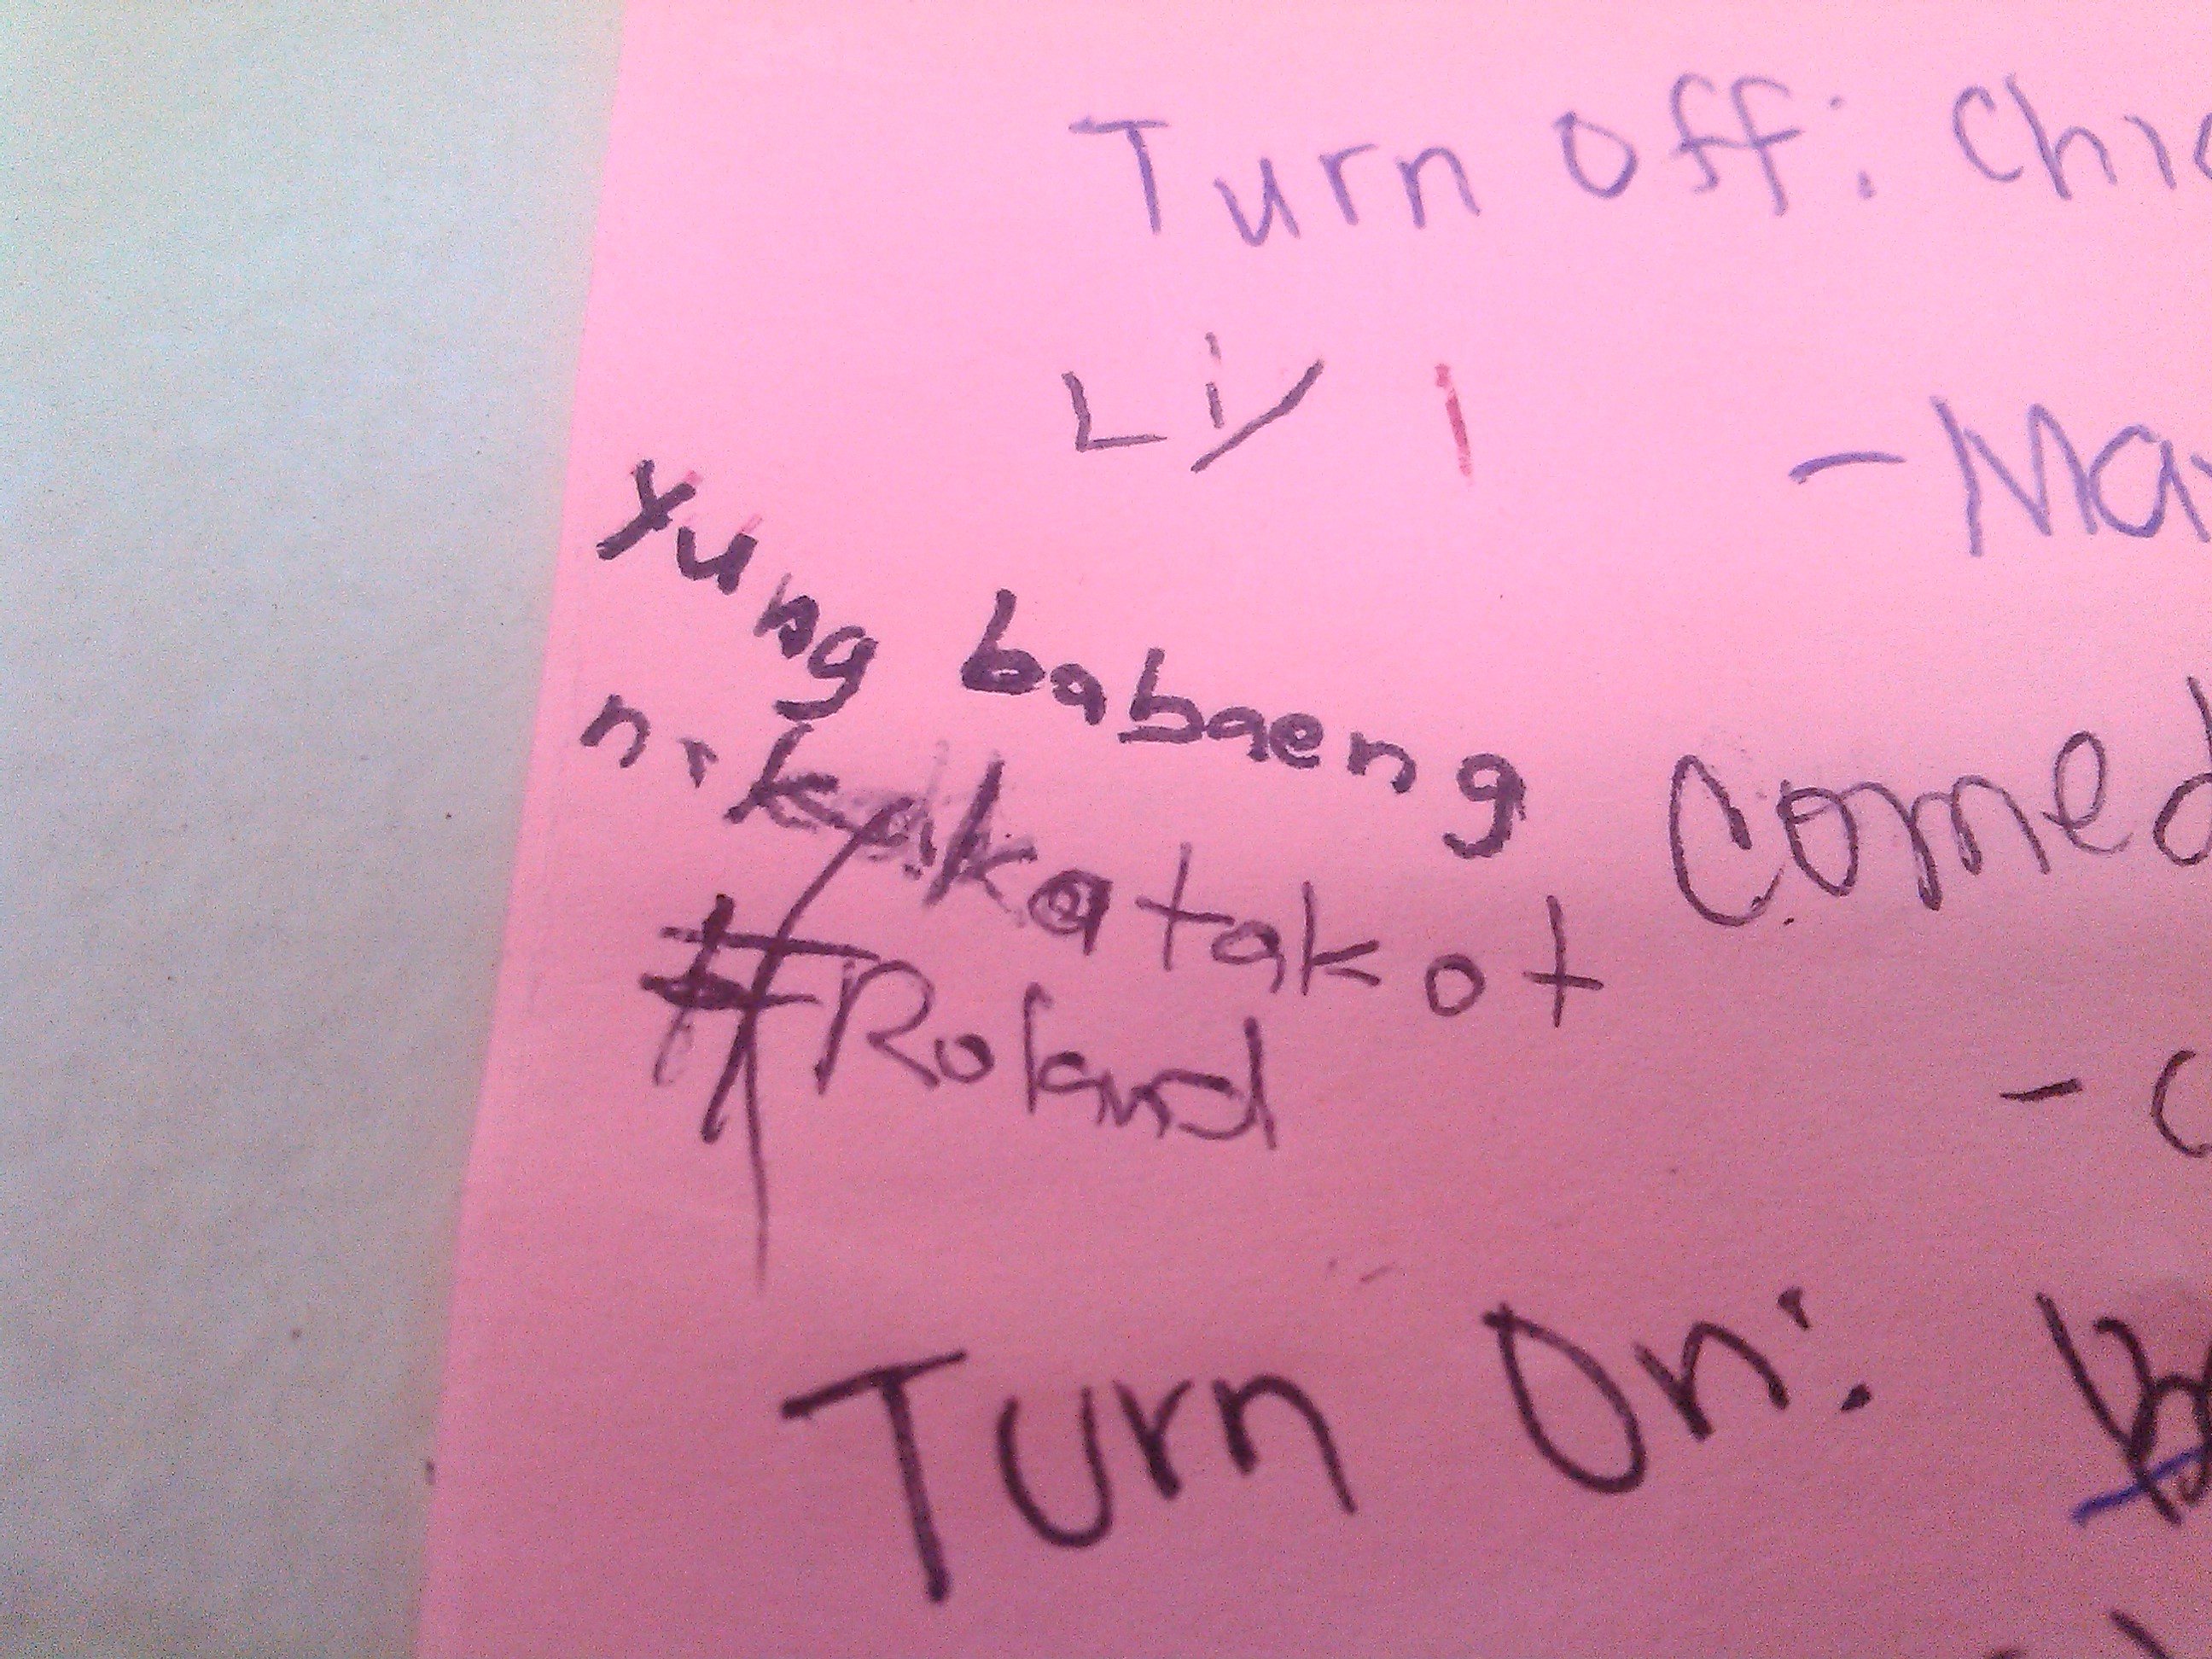 Turn Off: Chic
Liy
- May
Yung babaeng
nikakatakot
#Roland
Comed
- C
Turn On: